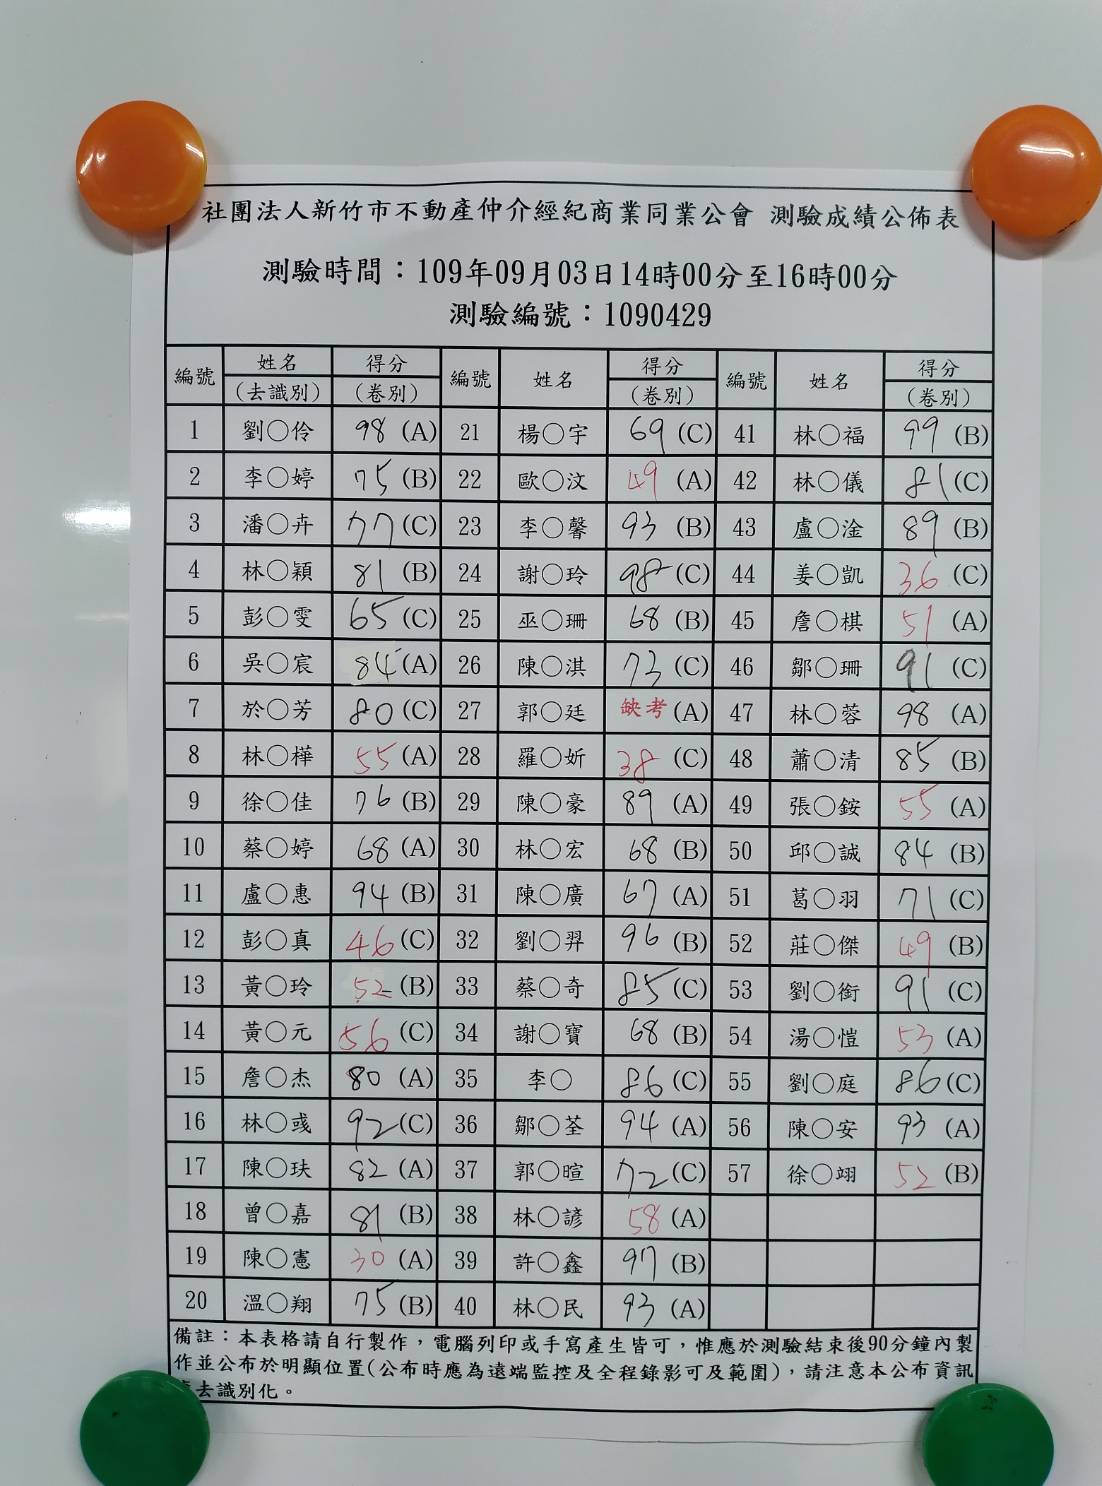 社團法人新竹市不動產仲介經紀商業同業公會 測驗成績公佈表
測驗時間：109年09月03日14時00分至16時00分
測驗編號：1090429
編號 姓名 得分 編號 姓名 得分 編號 姓名 得分
(去識別) (卷別) (卷別) (卷別)
1 劉○伶 98 (A) 21 楊○宇 69 (C) 41 林○福 99 (B)
2 李○婷 75 (B) 22 歐○汶 49 (A) 42 林○儀 81 (C)
3 潘○卉 77 (C) 23 李○馨 93 (B) 43 盧○淦 89 (B)
4 林○穎 81 (B) 24 謝○玲 98 (C) 44 姜○凱 36 (C)
5 彭○雯 65 (C) 25 巫○珊 68 (B) 45 詹○棋 51 (A)
6 吳○宸 84 (A) 26 陳○淇 73 (C) 46 鄒○珊 91 (C)
7 於○芳 80 (C) 27 郭○廷 缺考 (A) 47 林○蓉 98 (A)
8 林○樺 55 (A) 28 羅○妡 38 (C) 48 蕭○清 85 (B)
9 徐○佳 76 (B) 29 陳○豪 89 (A) 49 張○銨 55 (A)
10 蔡○婷 68 (A) 30 林○宏 68 (B) 50 邱○誠 84 (B)
11 盧○惠 94 (B) 31 陳○廣 67 (A) 51 葛○羽 71 (C)
12 彭○真 46 (C) 32 劉○羿 96 (B) 52 莊○傑 49 (B)
13 黃○玲 52 (B) 33 蔡○奇 85 (C) 53 劉○銜 91 (C)
14 黃○元 56 (C) 34 謝○寶 68 (B) 54 湯○愷 53 (A)
15 詹○杰 80 (A) 35 李○ 86 (C) 55 劉○庭 86 (C)
16 林○彧 92 (C) 36 鄒○荃 94 (A) 56 陳○安 93 (A)
17 陳○玞 82 (A) 37 郭○暄 72 (C) 57 徐○翊 52 (B)
18 曾○嘉 81 (B) 38 林○諺 58 (A)
19 陳○憲 30 (A) 39 許○鑫 97 (B)
20 溫○翔 75 (B) 40 林○民 93 (A)
備註：本表格請自行製作，電腦列印或手寫產生皆可，惟應於測驗結束後90分鐘內製
作並公布於明顯位置(公布時應為遠端監控及全程錄影可及範圍)，請注意本公布資訊
去識別化。